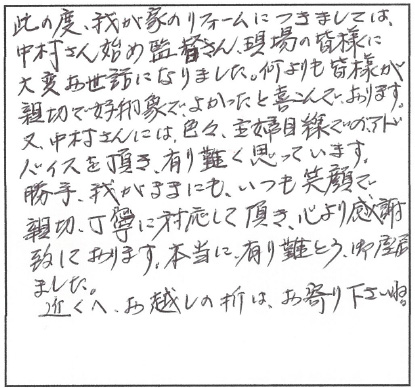 此の度、我が家のリフォームにつきましては、
中村さん始め監督さん、現場の皆様に
大変お世話になりました。何よりも皆様が
親切で好印象で、よかったと喜こんでおります。
又、中村さんには、色々、主婦目線でのアド
バイスを頂き、有り難く思っています。
勝手、我がままにも、いつも笑顔で
親切、丁寧に対応して頂き、心より感謝
致しております。本当に、有り難とう、御座居
ました。
近くへ、お越しの折は、お寄り下さいね